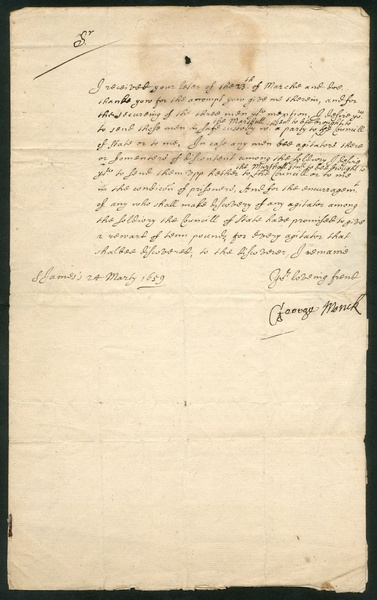 Sr
I received your leter of the 23th of Marche and doe
thanke yow for the accompt yow give me therein, and for
the secureing of the three men yow mention, I desire you
the Marshall to bee brought
to send those men in safe custody wt a party to the Councill
of State or to me, In case any men bee agitators there
or fomentors of discontent among the soldiery I desire
the Marshall to bee brought
you to send them upp hether to the Councill or to me
in the condicion of prisoners, And for the encouragemt
of any who shall make discovery of any agitator among
the soldiery the Councill of State have promised to give
a reward of tenn pounds for every agitator that
shalbee discovered, to the discoverer, I remaine
St James's 24 March 1659
Yor loveing frend
George Monck